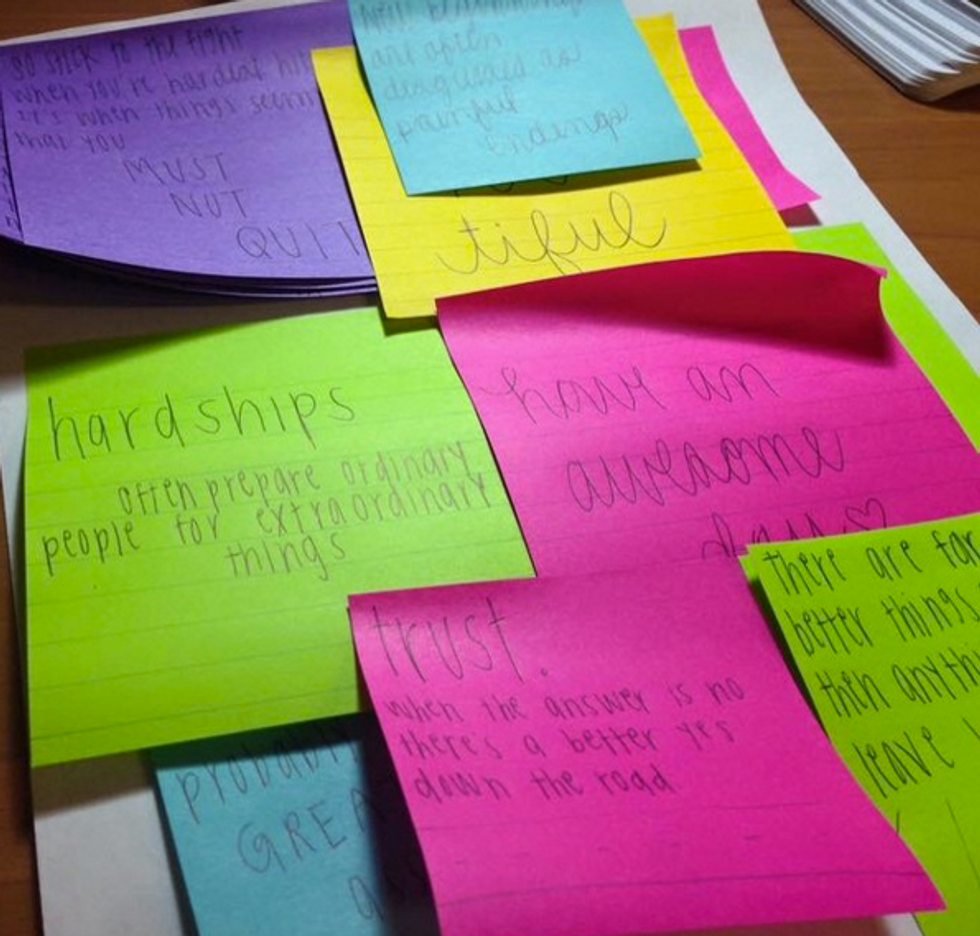 so stick to the fight
when you're hardest hit
it's when things seem
that you
MUST
NOT
QUIT
New beginnings
are often
disguised as
painful
endings
tiful
hardships
often prepare ordinary
people for extraordinary
things
have an
awesome
day ♡
trust.
when the answer is no
there's a better yes
down the road.
there are far
better things
then anythi
leave
probably
GREA